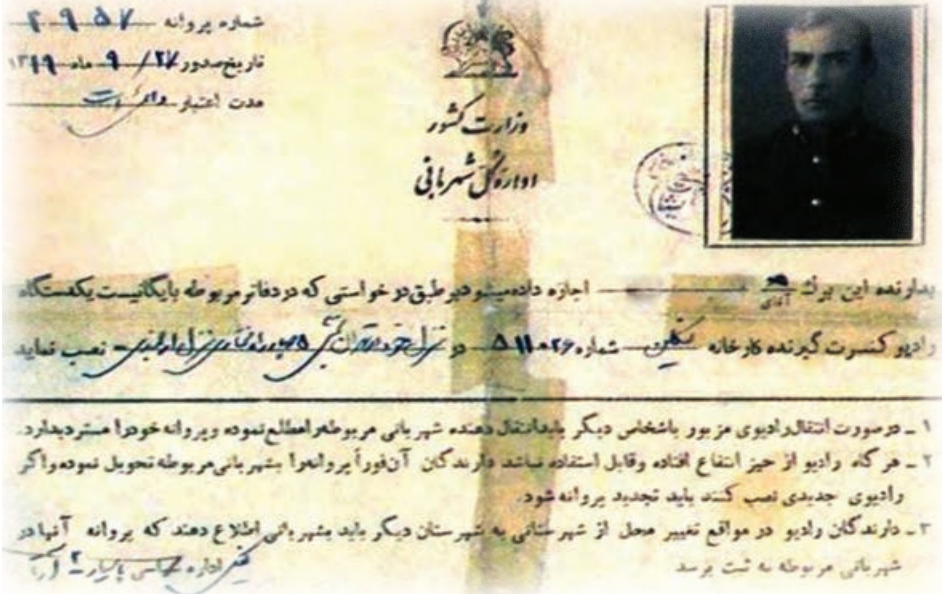 شماره پروانه ۲۹۵۷
تاریخ صدور ۲۷/ ۹ ماه ۱۳۱۹
مدت اعتبار
وزارت کشور
اداره کل شهربانی
بدارنده این برگ آقای اجازه داده میشود بر طبق در خواستی که در دفاتر مربوطه بایگانیست یکدستگاه
رادیو کنسرت گیرنده کارخانه شماره ۵۱۱۰۲۶ در منزل خود در تهران نصب نماید
۱ ـ در صورت انتقال رادیوی مزبور باشخاص دیگر باید انتقال دهنده شهربانی مربوطه را مطلع نموده و پروانه خود را مسترد بدارد.
۲ ـ هر گاه رادیو از حیز انتفاع افتاده و قابل استفاده نباشد دارندگان آن فوراً پروانه را بشهربانی مربوطه تحویل نموده و اگر
رادیوی جدیدی نصب کنند باید تجدید پروانه شود.
۳ ـ دارندگان رادیو در مواقع تغییر محل از شهرستانی به شهرستان دیگر باید بشهربانی اطلاع دهند که پروانه آنها در
شهربانی مربوطه به ثبت برسد
اداره